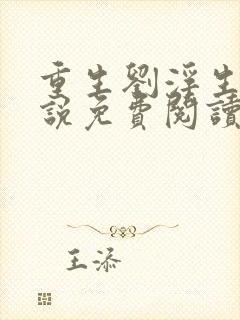 重生劉淫生
說免費閱讀
王添